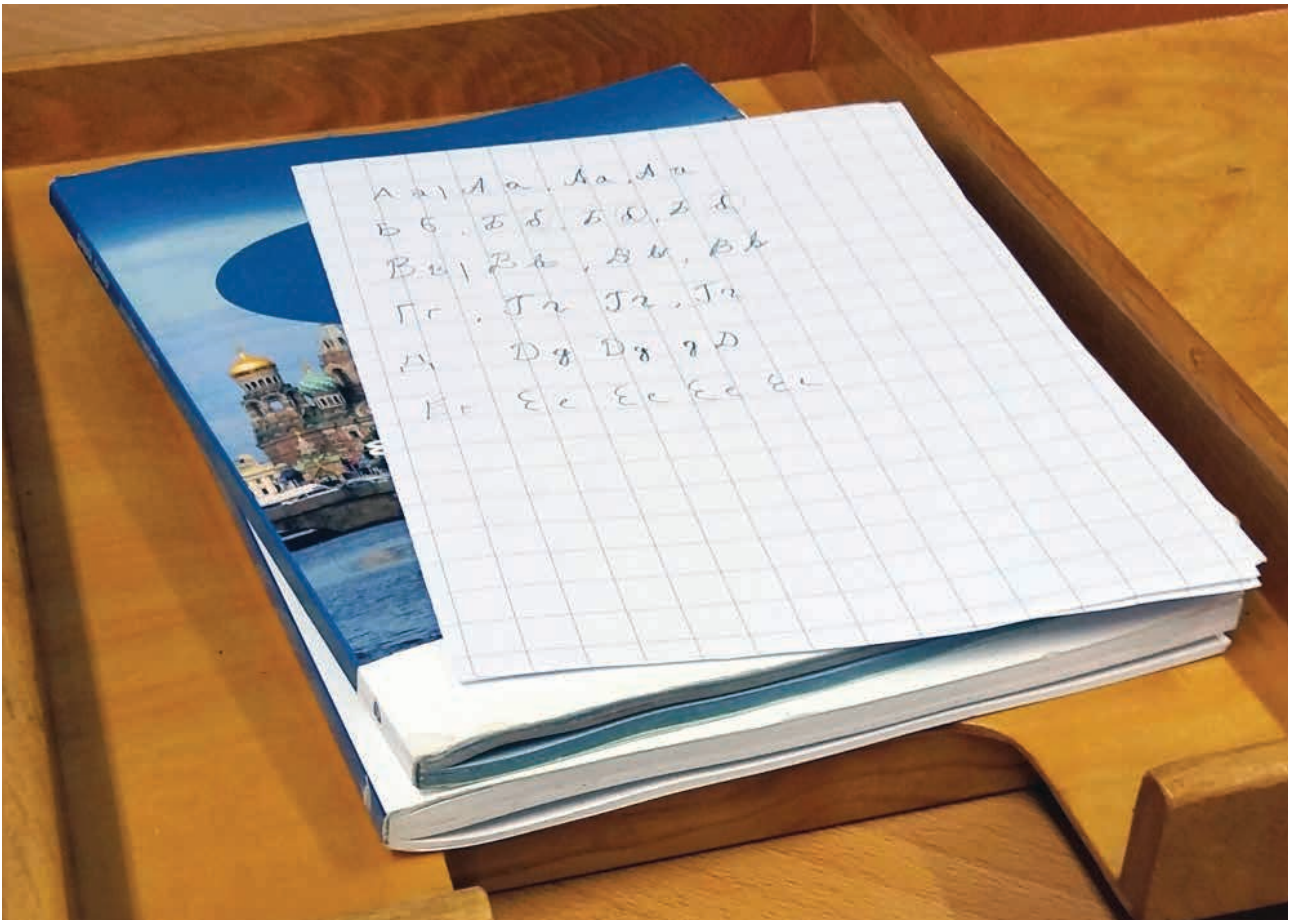 А а, А а, А а, А а
Б б, Б б, Б б, Б б
В в, В в, В в, В в
Г г, Г г Г г, Г г
Д Д д Д д д Д
Е е Е е Е е Е е Е е